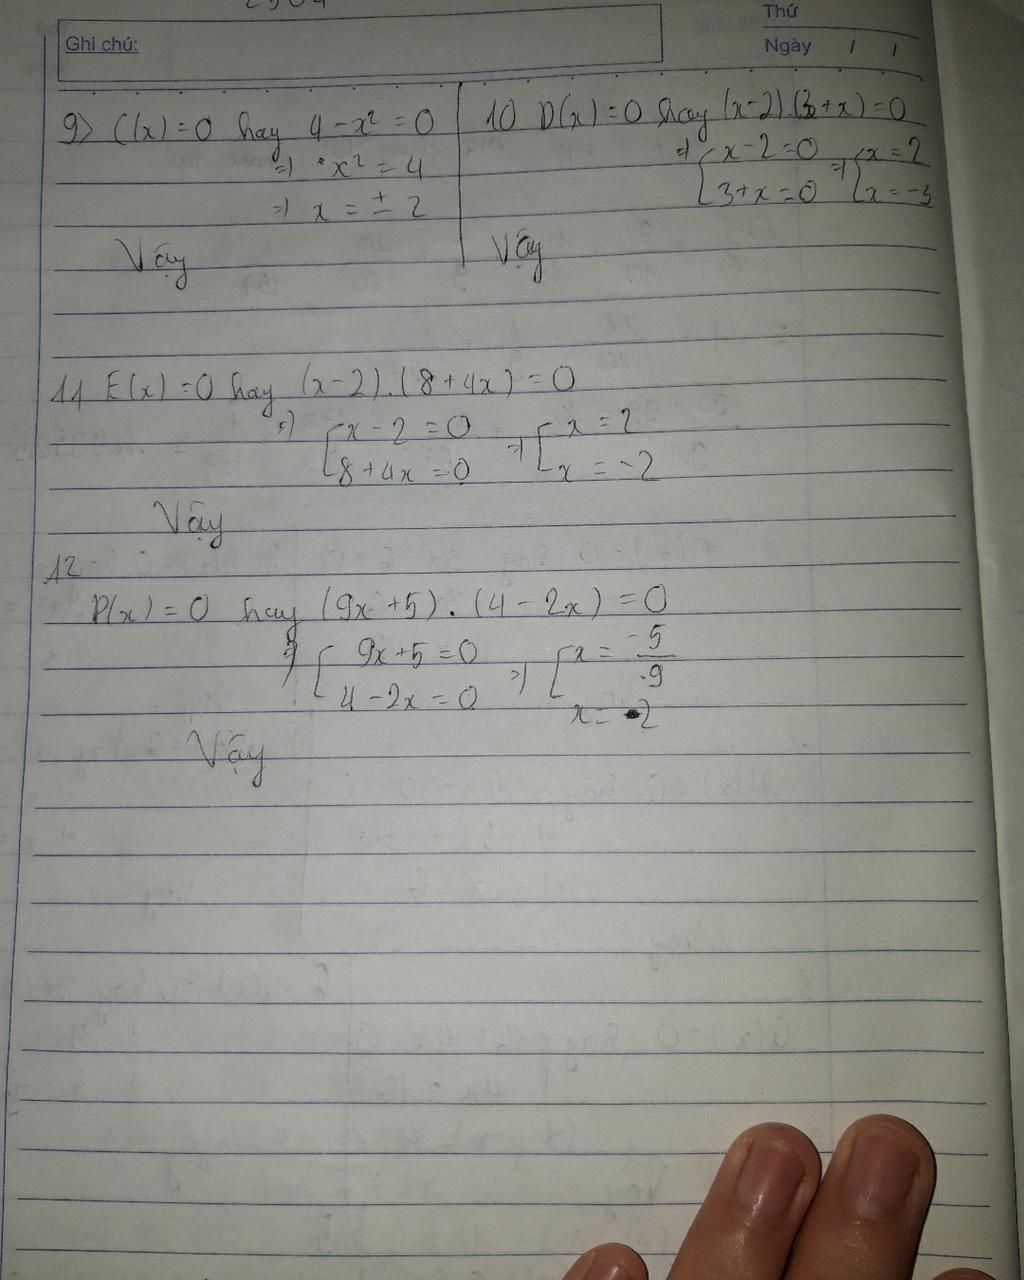 Ghi chú:
Thứ
Ngày / /
9> C(x) = 0 hay 4 - x² = 0
=> x² = 4
=> x = ± 2
Vậy
10 D(x) = 0 hay (x-2).(3+x) = 0
=> [ x - 2 = 0 => [ x = 2
3 + x = 0 x = -3
Vậy
11 E(x) = 0 hay (x-2).(8+4x) = 0
=> [ x - 2 = 0 => [ x = 2
8 + 4x = 0 x = -2
Vậy
12
P(x) = 0 hay (9x+5).(4-2x) = 0
=> [ 9x+5 = 0 => [ x = -5/9
4 - 2x = 0 x = 2
Vậy